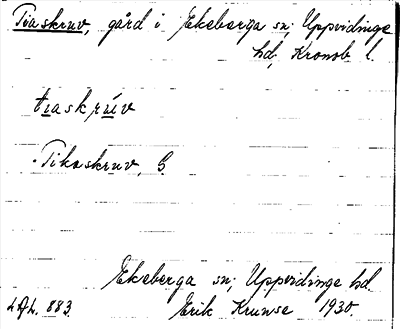 Tiaskruv, gård i Ekeberga sn; Uppvidinge
hd, Kronob l.
tiaskrúv
Tikaskruv, G.
Ekeberga sn; Uppvidinge hd.
L.A.L. 883. Erik Kruuse 1930.